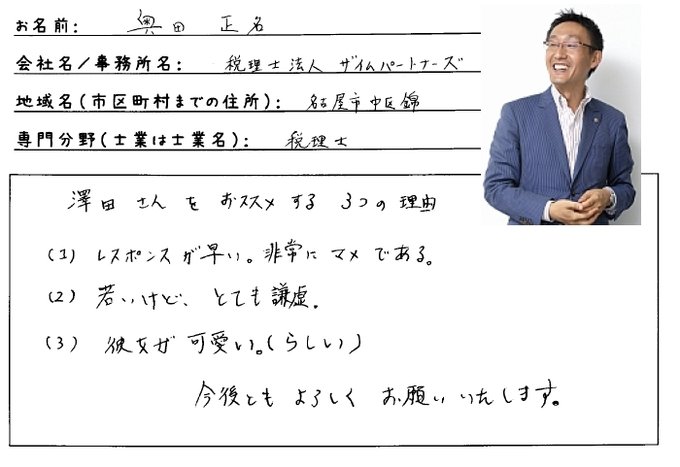 お名前: 奥田 正名
会社名/事務所名: 税理士法人 ザイムパートナーズ
地域名(市区町村までの住所): 名古屋市中区錦
専門分野(士業は士業名): 税理士
澤田さんをおススメする 3つの理由
(1) レスポンスが早い。非常にマメである。
(2) 若いけど、とても謙虚。
(3) 彼女が可愛い。(らしい)
今後ともよろしくお願いいたします。